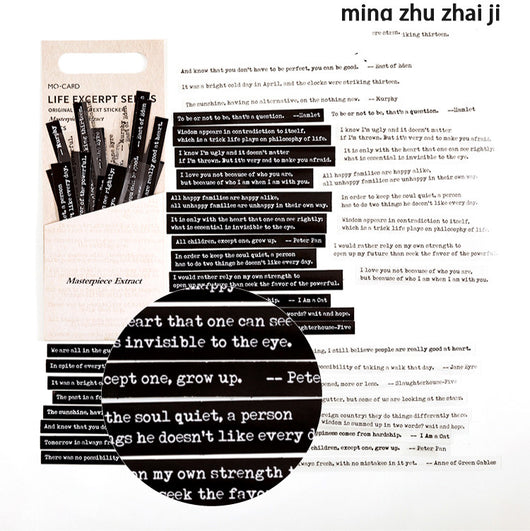 ming zhu zhai ji
MO-CARD
LIFE EXCERPT
ORIGINAL
Masterpiece Extract
iking thirteen.
And know that you don't have to be perfect, you can be good. -- East of Eden
It was a bright cold day in April, and the clocks were striking thirteen.
The sunshine, having no alternative, on the nothing new. -- Murphy
To be or not to be, that's a question. --Hamlet
To be or not to be, that's a question. --Hamlet
Wisdom appears in contradiction to itself,
which is a trick life plays on philosophy of life.
I know I'm ugly and it doesn't matter
if I'm thrown. But it's very end to make you afraid.
I love you not because of who you are,
but because of who I am when I am with you.
All happy families are happy alike,
all unhappy families are unhappy in their own way.
It is only with the heart that one can see rightly;
what is essential is invisible to the eye.
All children, except one, grow up. -- Peter Pan
In order to keep the soul quiet, a person
has to do two things he doesn't like every day.
I would rather rely on my own strength to
open up my future than seek the favor of the powerful.
-- I Am a Cat
words? wait and hope.
ughterhouse-Five
I know I'm ugly and it doesn't matter
if I'm thrown. But it's very end to make you afraid.
It is only with the heart that one can see rightly;
what is essential is invisible to the eye.
All happy families are happy alike,
all unhappy families are unhappy in their own way.
In order to keep the soul quiet, a person
has to do two things he doesn't like every day.
Wisdom appears in contradiction to itself,
which is a trick life plays on philosophy of life.
I would rather rely on my own strength to
open up my future than seek the favor of the powerful.
I love you not because of who you are,
but because of who I am when I am with you.
Masterpiece Extract
We are all in the gu
In spite of everyt
It was a bright c
The past is a fo
The sunshine, havin
And know that you d
Tomorrow is always fr
There was no possibility
eart that one can see
s invisible to the eye.
cept one, grow up. -- Pete
the soul quiet, a person
gs he doesn't like every d
on my own strength t
seek the favo
ing, I still believe people are really good at heart.
ossibility of taking a walk that day. -- Jane Eyre
pened, more or less. -- Slaughterhouse-Five
gutter, but some of us are looking at the stars.
reign country; they do things differently there.
wisdom is summed up in two words? wait and hope.
piness comes from hardship. -- I Am a Cat
ldren, except one, grow up. -- Peter Pan
ways fresh, with no mistakes in it yet. -- Anne of Green Gables